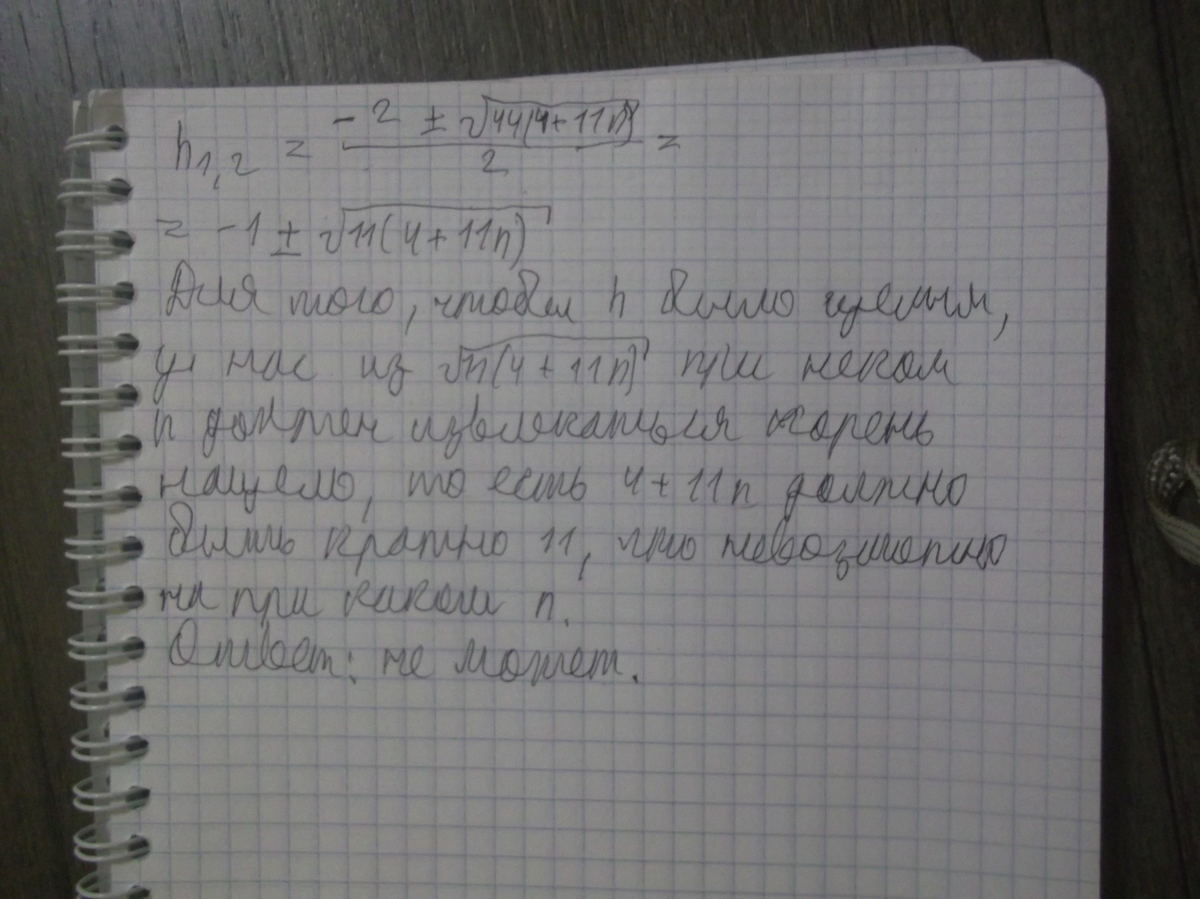 h₁,₂ = (-2 ± √(44(4+11n)))/2 =
= -1 ± √(11(4+11n))
Для того, чтобы h было целым,
у нас из √(11(4+11n)) при неком
n должен извлекаться корень
нацело, то есть 4+11n должно
быть кратно 11, что невозможно
ни при каком n.
Ответ: не может.